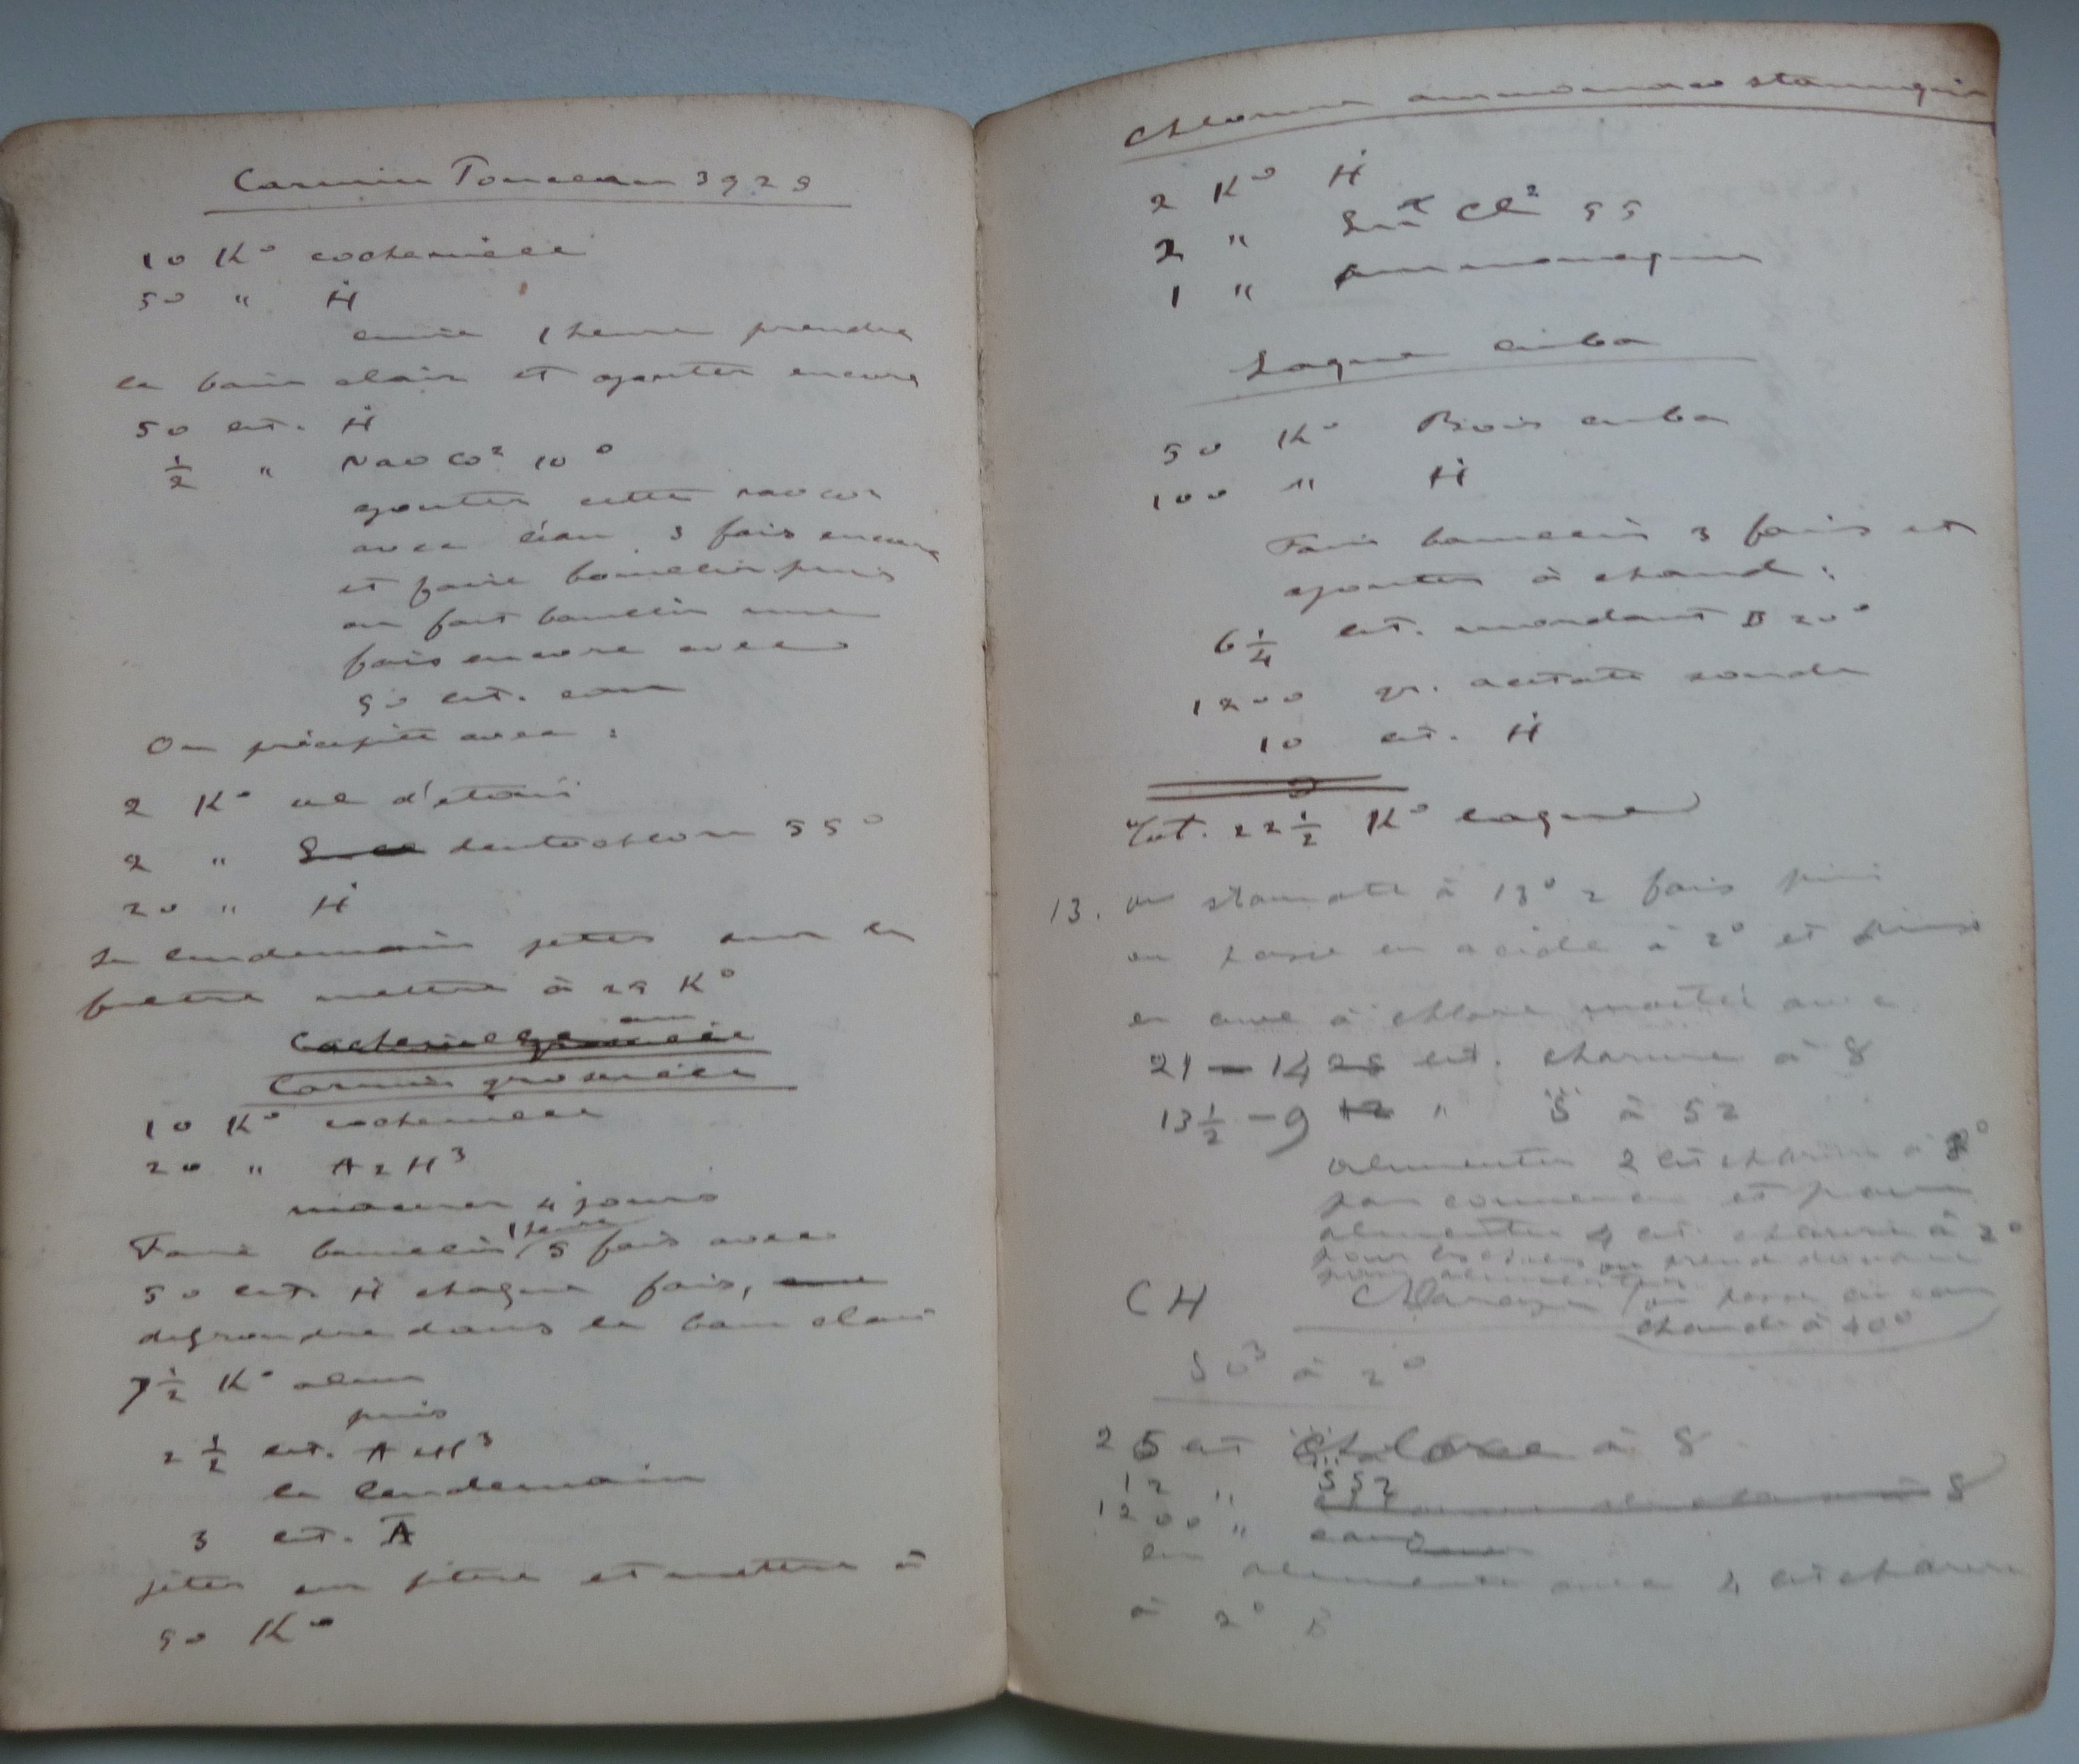 Carmin Ponceau 3928
10 K° cochenille
50 " Ḣ
cuire 1 heure prendre
le bain clair et ajouter encore
50 lit. Ḣ
1/2 " NaO CO² 10°
ajouter cette NaOCO²
avec l'eau 3 fois encore
et faire bouillir puis
on fait bouillir une
fois encore avec
50 lit. eau
On précipite avec :
2 K° sel d'étain
2 " deutochlore 55°
20 " Ḣ
Le lendemain jeter sur le
filtre mettre à 25 K°
Carmin groseille
10 K° cochenille
20 " AzH³
macérer 4 jours
Faire bouillir 1 heure 5 fois avec
50 lit. Ḣ chaque fois,
dissoudre dans le bain clair
7 1/2 K° alun
puis
2 1/2 lit. AzH³
le lendemain
3 lit. A
jeter sur filtre et mettre à
50 K°
Chlorure ammoniaco stannique
2 K° Ḣ
2 " Cl² 55
1 " Ammoniaque
Laque cuba
50 K° Bois cuba
100 " Ḣ
Faire bouillir 3 fois et
ajouter à chaud :
6 1/4 lit. mordant B 20°
1200 gr. acétate soude
10 lit. Ḣ
22 1/2 K° laque
13. on stannate à 13° 2 fois puis
on passe en acide à 2° et puis
en cuve à chlore monté avec
21 – 14 28 lit. chlorure à 8
13 1/2 – 9 12 " S à 52
alimenter 2 lit chlorure à
pour commencer et puis
alimenter 4 lit. chlorure à 2°
CH
on passe en eau
chaude à 40°
SO³ à 2°
25 lit chlore à 8
12 " S 52
1200 " eau
on alimente avec 4 lit chlorure
à 2° B